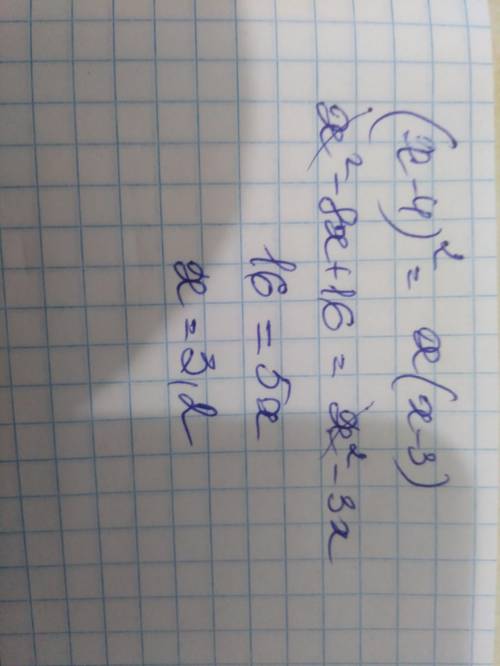 (x-4)² = x(x-3)
x²-8x+16 = x²-3x
16 = 5x
x = 3,2